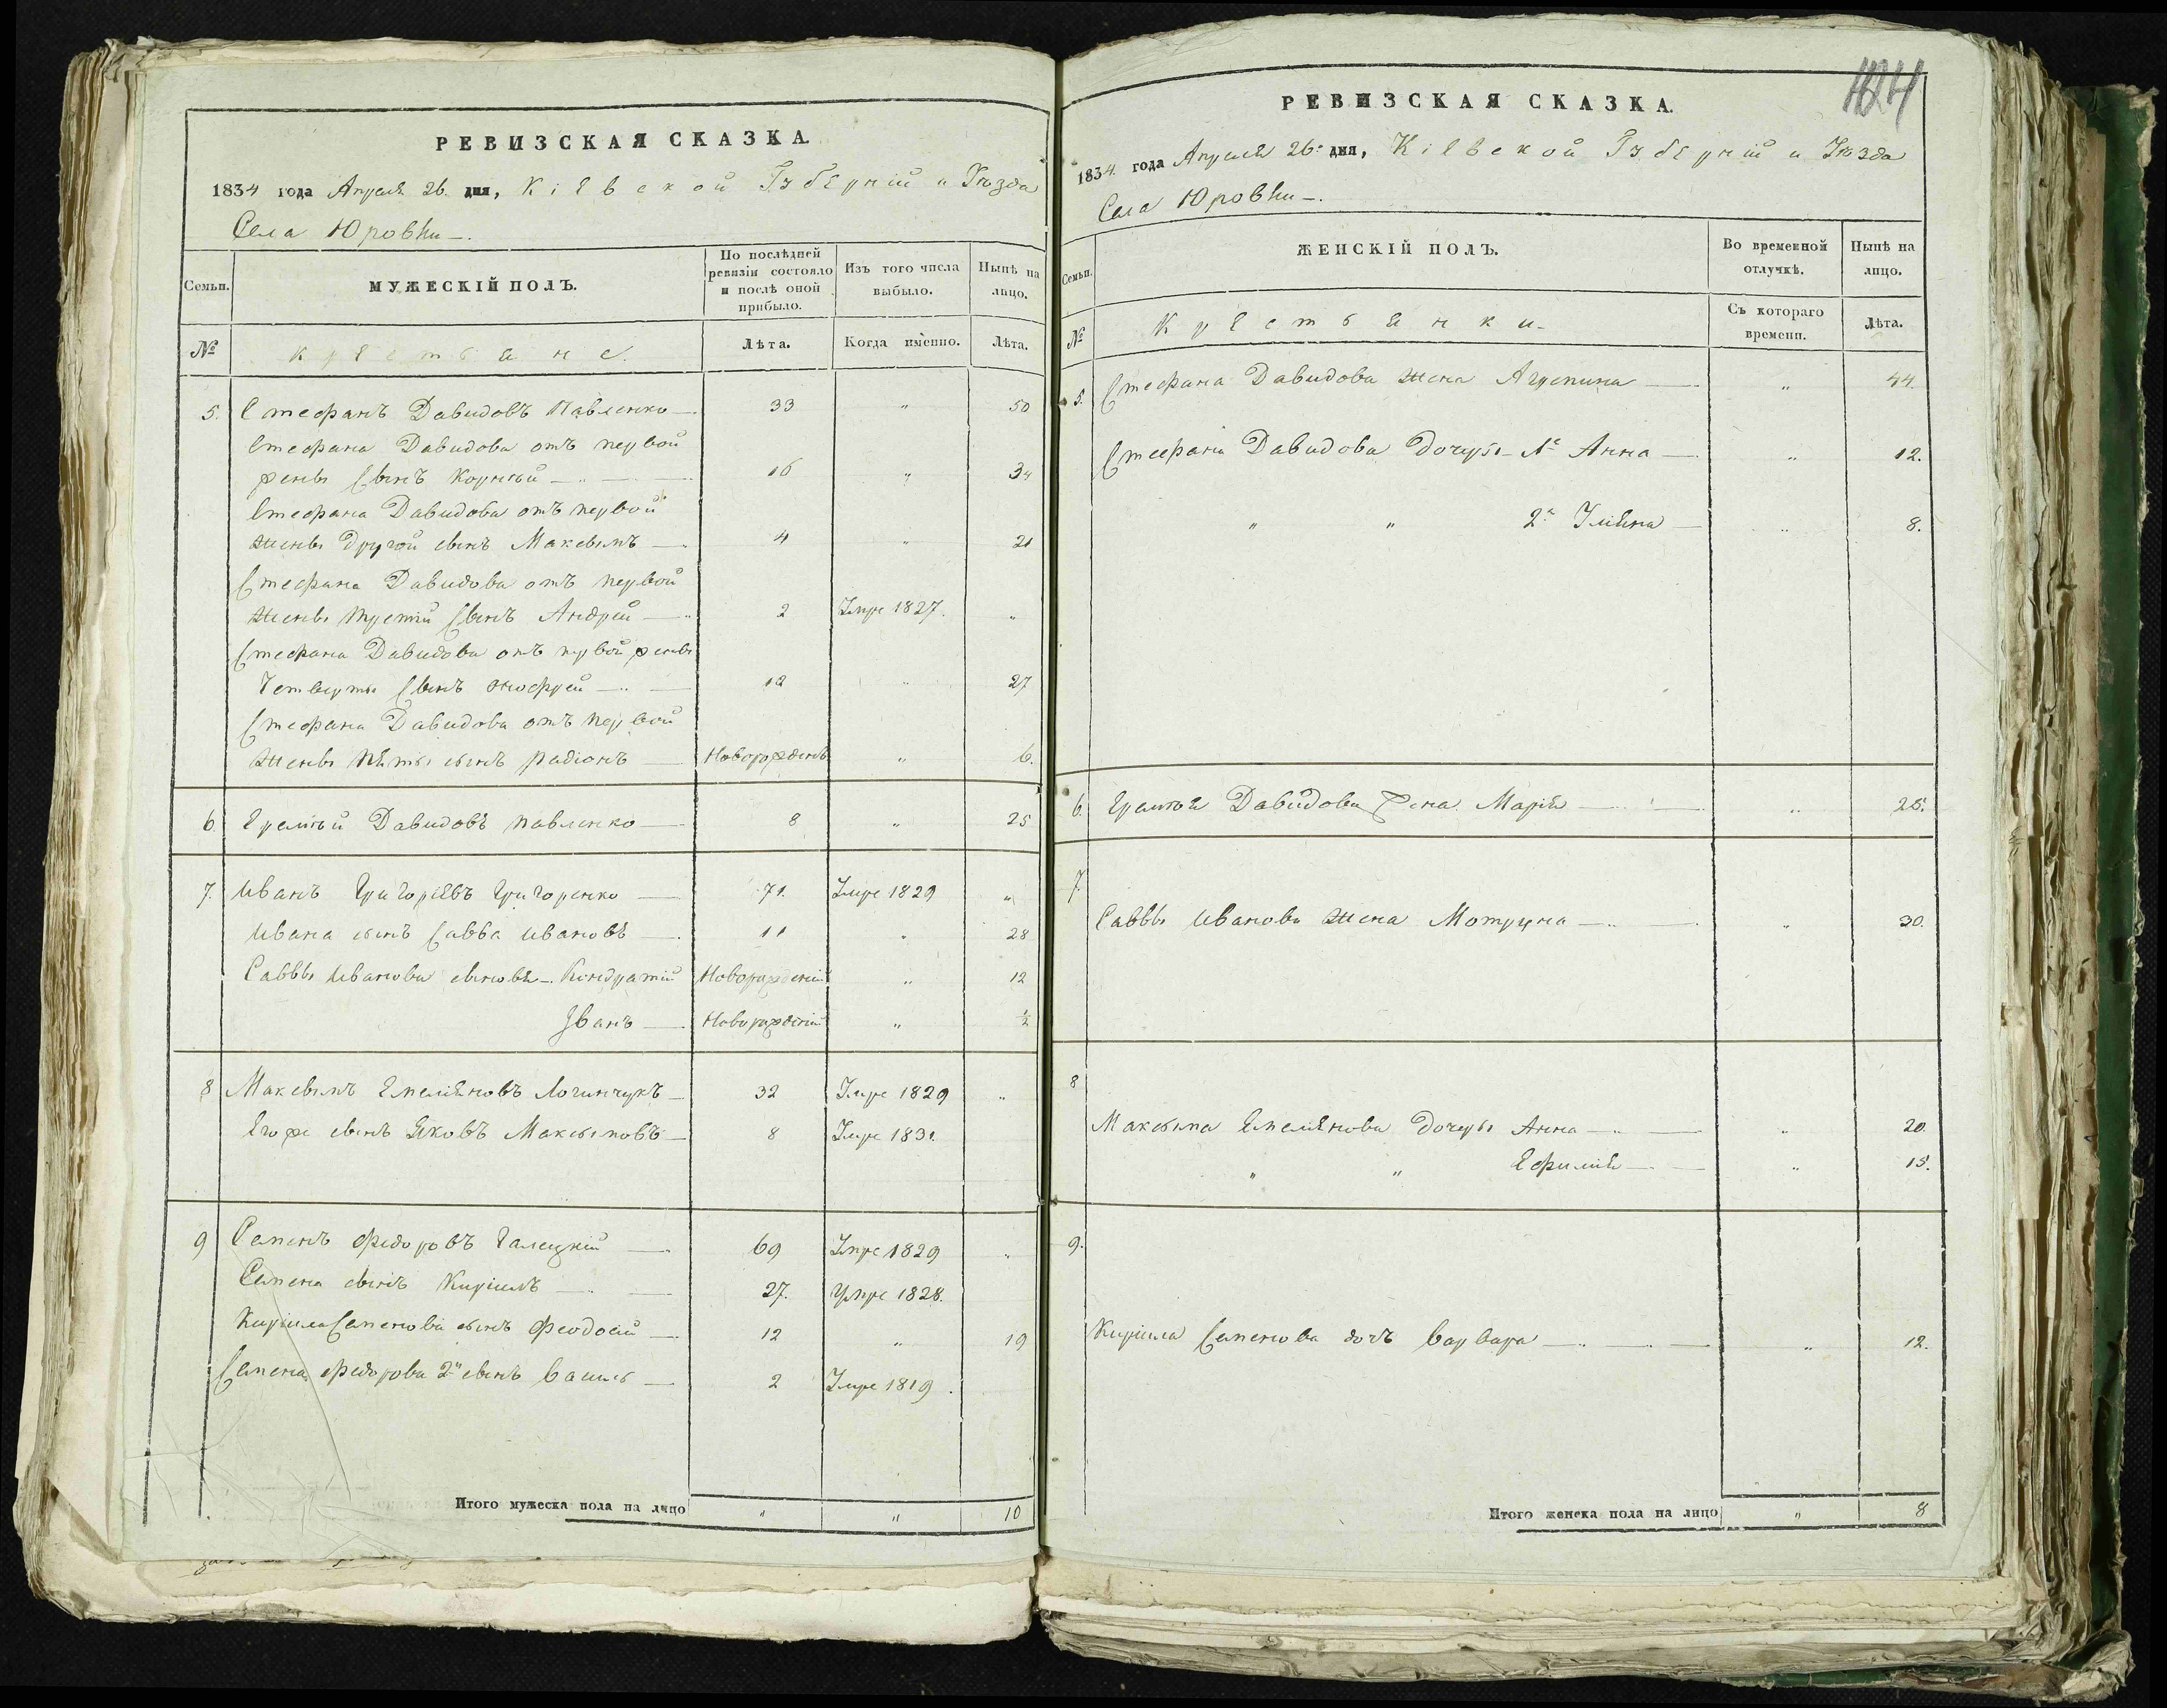 РЕВИЗСКАЯ СКАЗКА.
1834 года Апреля 26 дня, Кіевской Губерніи и Уѣзда
Села Юровки —.
Семьи.
МУЖЕСКІЙ ПОЛЪ.
По послѣдней ревизіи состояло и послѣ оной прибыло.
Изъ того числа выбыло.
Нынѣ на лицо.
№
Крестьяне.
Лѣта.
Когда имѣнно.
Лѣта.
5. Стефанъ Давидовъ Павленко — 33 „ 50
Стефана Давидова отъ первой
жены сынъ Корнѣй — 16 „ 34
Стефана Давидова отъ первой
жены другой сынъ Максымъ — 4 „ 21
Стефана Давидова отъ первой
жены третій сынъ Андрей — 2 Умре 1827. „
Стефана Давидова отъ первой жены
Четверты сынъ Онофрей — 12 „ 27
Стефана Давидова отъ первой
жены пяты сынъ радіонъ Новорожденъ „ 6.
6. Еремѣй Давидовъ павленко — 8 „ 25
7. Иванъ Григоріевъ Григоренко — 71. Умре 1829 „
Ивана сынъ Савва Ивановъ — 11 „ 28
Саввы Иванова сыновя —. Кондратій Новорожденій „ 12
Іванъ — Новорожденій „ ½
8 Максымъ Емеліяновъ Логинчукъ — 32 Умре 1829 „
Его же сынъ Яковъ Максымовъ — 8 Умре 1831.
9 Семенъ Федоровъ Галецкій — 69 Умре 1829 „
Семена сынъ Кирилъ — 27. Умре 1828.
Кирила Семенова сынъ Феодосій — 12 „ 19
Семена Федорова 2й сынъ Василь — 2 Умре 1819.
Итого мужеска пола на лицо „ „ 10
124
РЕВИЗСКАЯ СКАЗКА.
1834. года Апреля 26. дня, Кіевской Губерніи и Уѣзда
Села Юровки —.
Семьи.
ЖЕНСКІЙ ПОЛЪ.
Во временной отлучкѣ.
Нынѣ на лицо.
№
Крестьянки —
Съ котораго времени.
Лѣта.
5. Стефана Давидова жена Агрепина — „ 44.
Стефана Давидова дочеры — 1я Анна — „ 12.
„ „ 2я Уліяна — „ 8.
6. Еремѣя Давидова жена Марія — „ 25.
7.
Саввы Иванова жена Мотруна — „ 30.
8
Максыма Емеліянова дочеры Анна — „ 20.
„ „ Ефимія — „ 15.
9.
Кирила Семенова дочъ Варвара — „ 12.
Итого женска пола на лицо „ 8